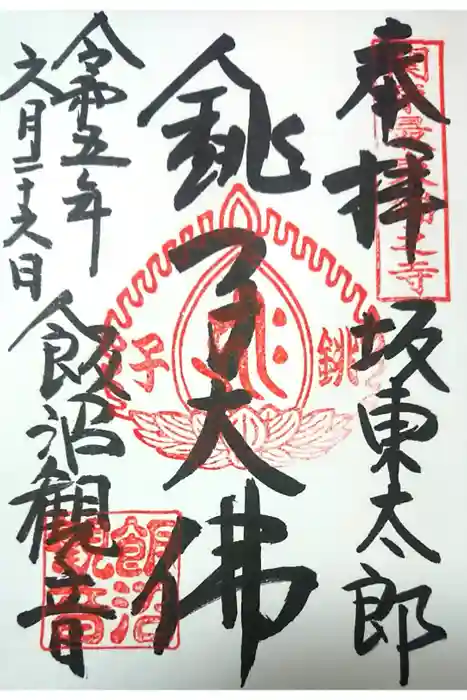 奉拝
坂東太郎
銚子大佛
令和五年
六月二十六日
飯沼観音
銚子
飯沼
観音